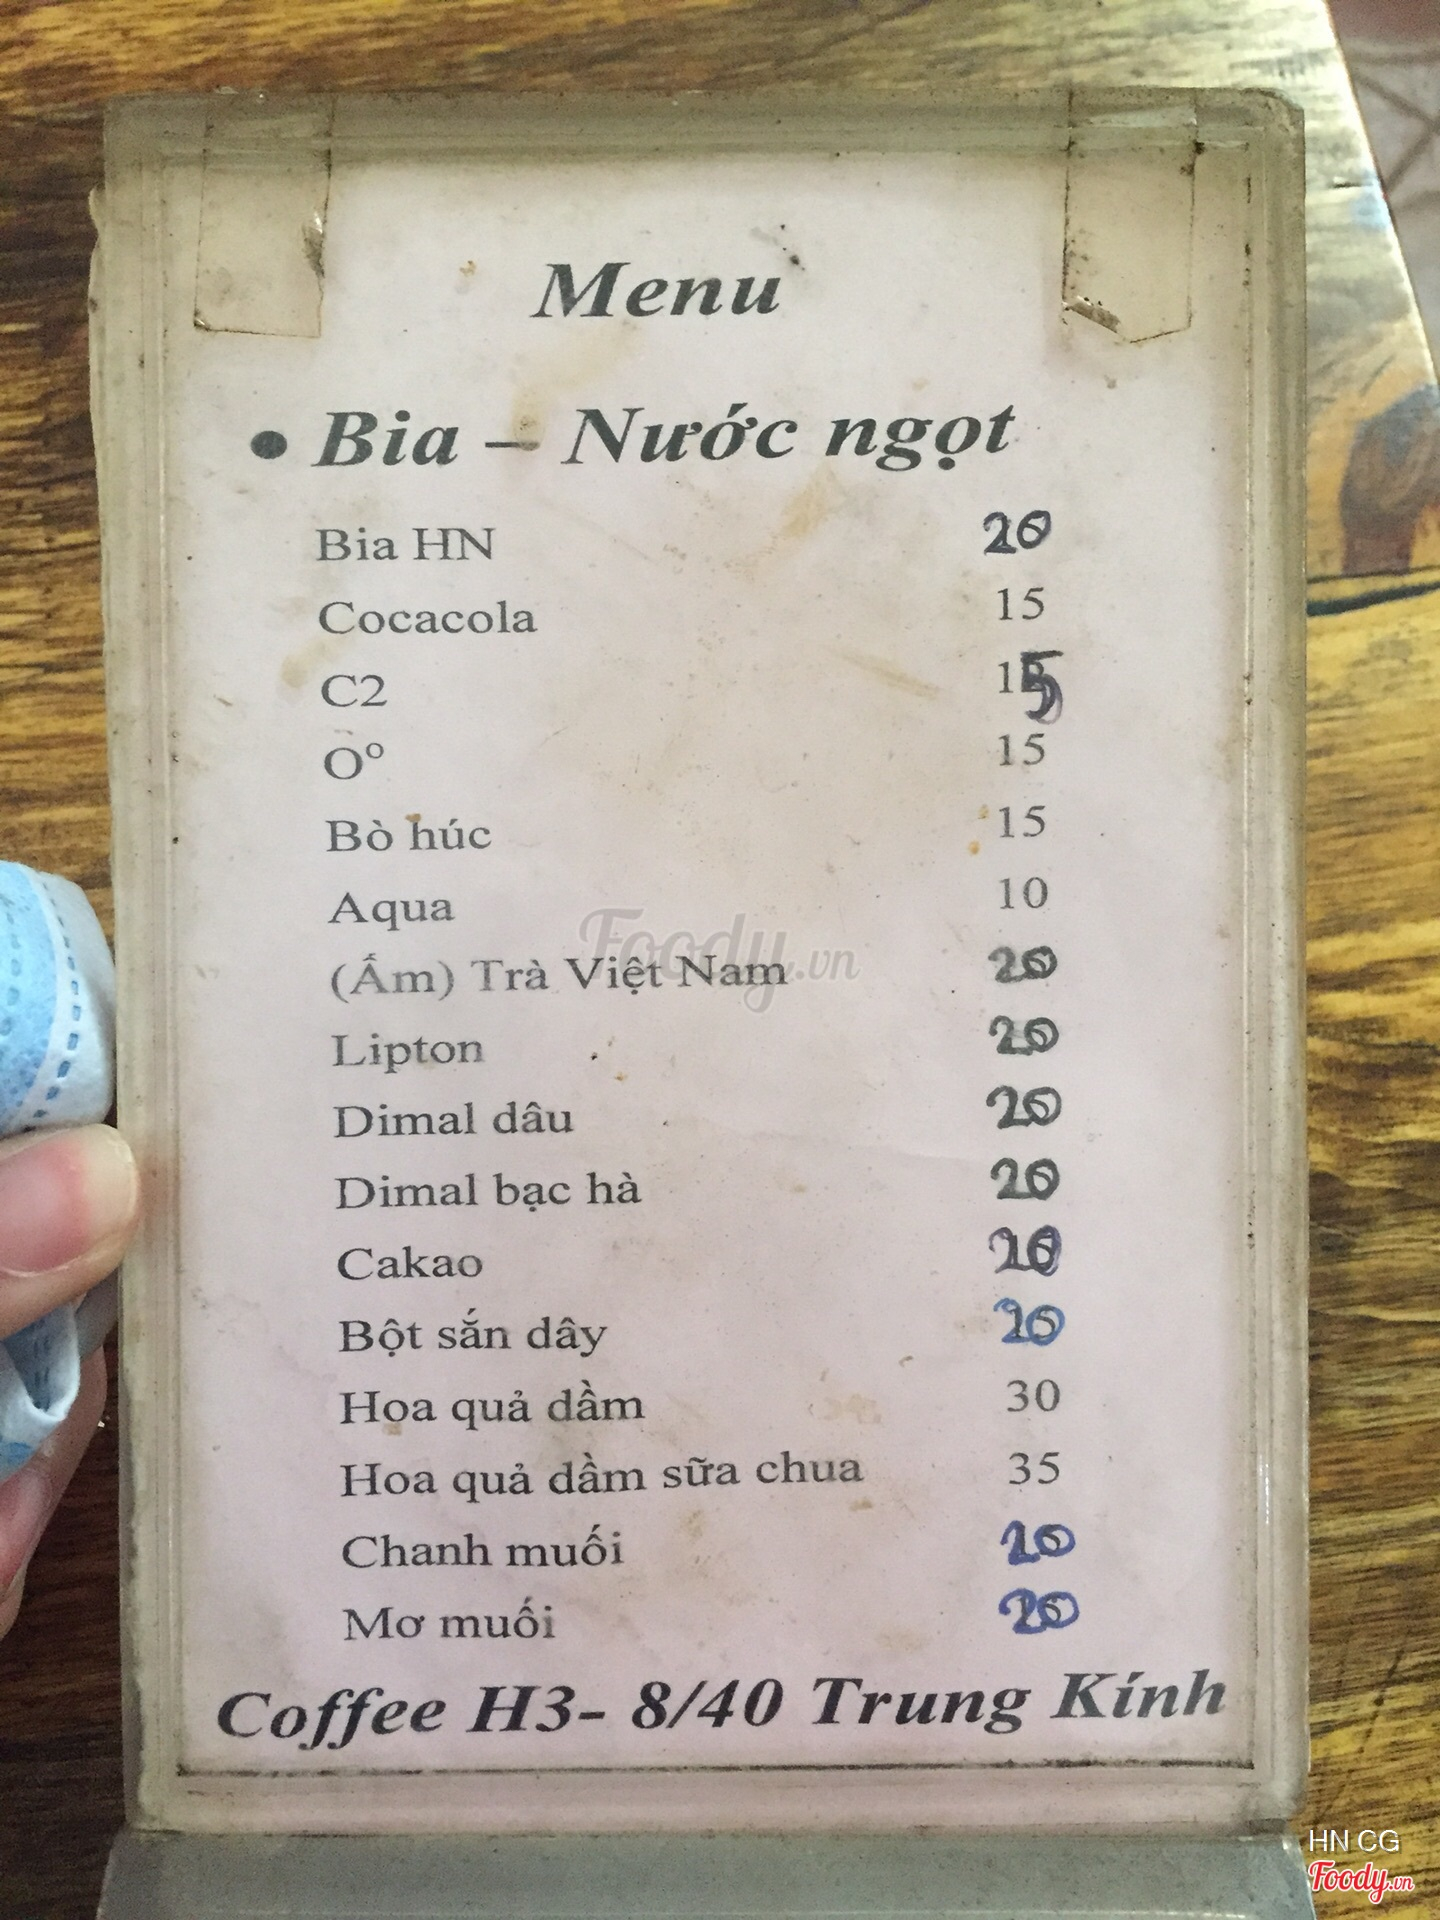 Menu
• Bia – Nước ngọt
Bia HN 20
Cocacola 15
C2 15
O° 15
Bò húc 15
Aqua 10
(Ấm) Trà Việt Nam 20
Lipton 20
Dimal dâu 20
Dimal bạc hà 20
Cakao 20
Bột sắn dây 20
Hoa quả dầm 30
Hoa quả dầm sữa chua 35
Chanh muối 20
Mơ muối 20
Coffee H3- 8/40 Trung Kính
Foody.vn
HN CG
Foody.vn